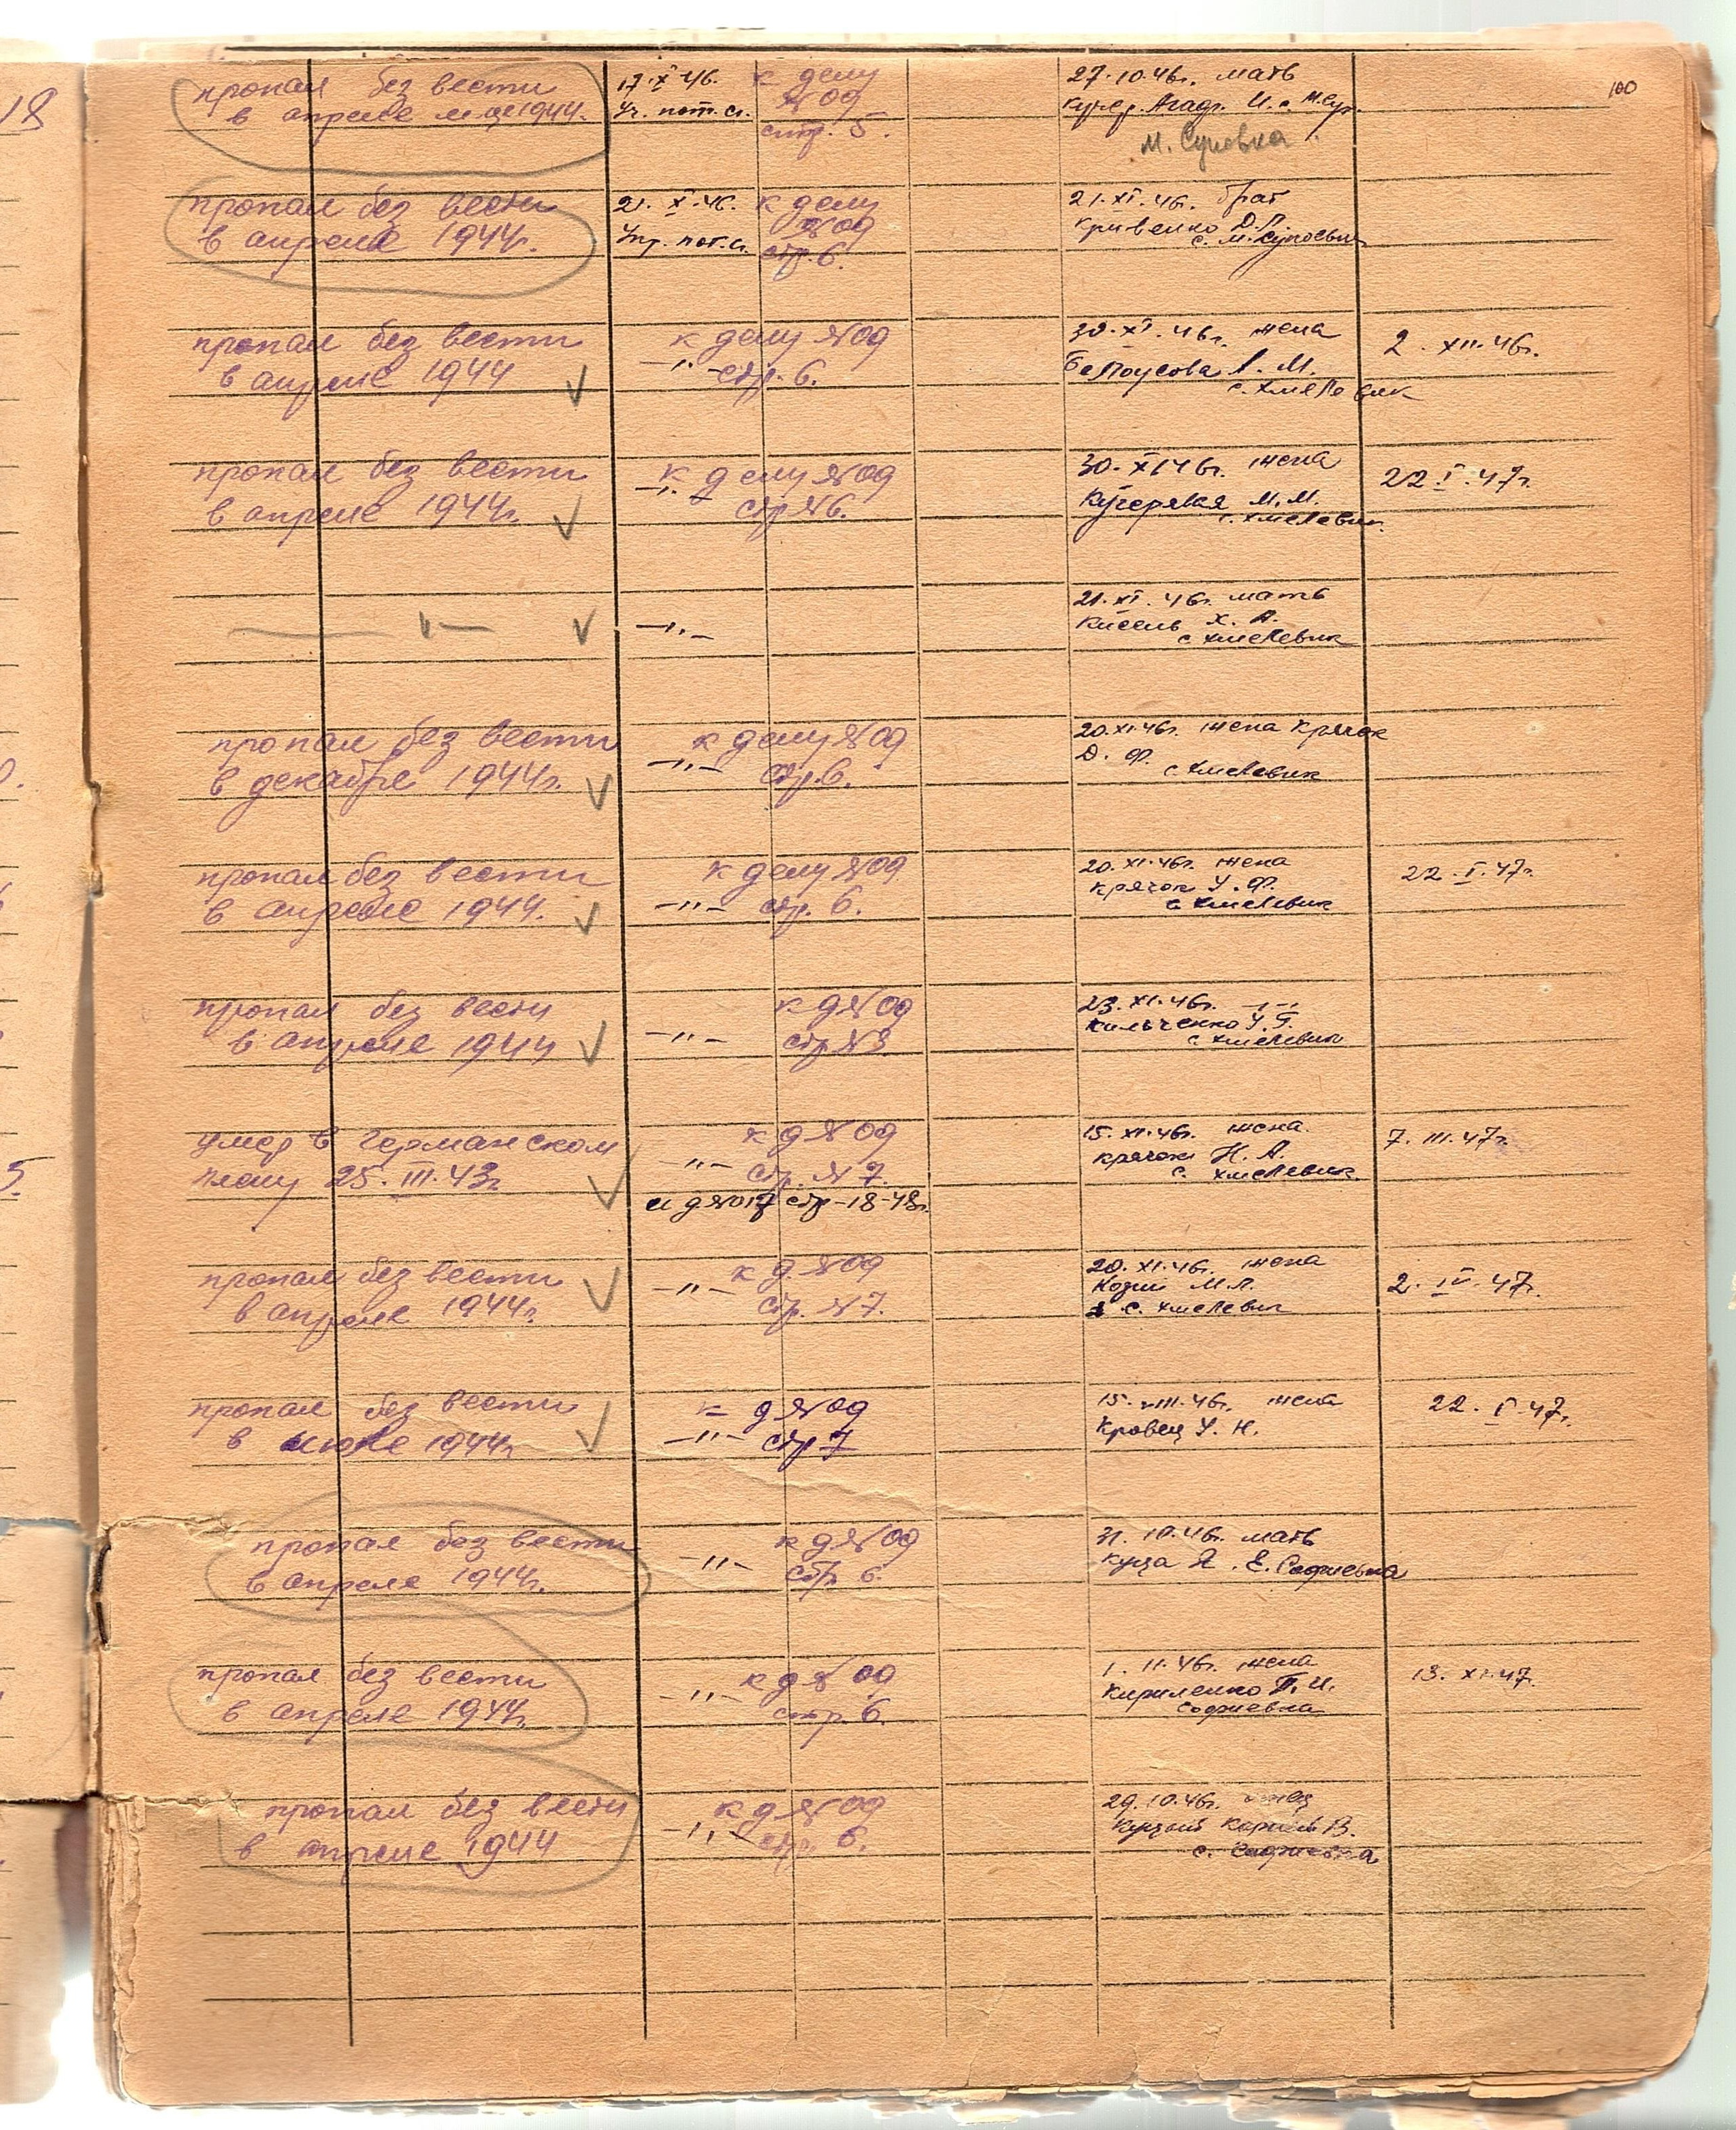 18
100
пропал без вести
в апреле м-це 1944.
17.X.46.
к делу
№ 09
стр. 5.
27.10.46г. мать
М. Суновка
пропал без вести
в апреле 1944г.
21.X.46.
Упр. пот. с.
к делу
№ 09
стр. 6.
21.XI.46г. брат
Кривенко Д.П.
пропал без вести
в апреле 1944
к делу № 09
-"- стр. 6.
30.XI.46г. жена
Белоусова А. М.
с. Хмелевик
2. XII.46г.
пропал без вести
в апреле 1944г.
к делу № 09
-"- стр № 6.
30.XI 46г. жена
Кучерявая М.М.
с. Хмелевик
22.I.47г.
-"-
-"-
21.XI.46г. мать
Кисель Х. А.
с Хмелевик
пропал без вести
в декабре 1944г.
к делу № 09
-"- стр. 6.
20.XI.46г. жена Крячок
Д. Ф.
с. Хмелевик
пропал без вести
в апреле 1944.
к делу № 09
-"- стр. 6.
20.XI.46г. жена
Крячок У. Ф.
с Хмелевик
22.I.47г.
пропал без вести
в апреле 1944
к д № 09
-"- стр № 8
23.XI.46г. -"-
Кильченко У.Г.
с. Хмелевик
умер в германском
плену 25.III.43г.
к д № 09
-"- стр. № 7.
и д № 017 стр-18-48г.
15.XI.46г. жена.
Крячок Н. А.
с. Хмелевик
7. III.47г.
пропал без вести
в апреле 1944г.
к д. № 09
-"- стр. № 7.
20.XI.46г. жена
Козий М.П.
с. Хмелевик
2. IV.47г.
пропал без вести
в июне 1944г.
к д № 09
-"- стр 7
15.VIII.46г. жена
Кровец У. Н.
22.I.47г.
пропал без вести
в апреле 1944г.
к д № 09
-"- стр. 6.
31.10.46г. мать
Куца Я. Е. Софиевка
пропал без вести
в апреле 1944г.
к д № 09
-"- стр. 6.
1.11.46г. жена
Кириленко П.И.
Софиевка
13. XI.47.
пропал без вести
в апреле 1944
к д № 09
-"- стр. 6.
29.10.46г. отец
Куцый Корней В.
с. Софиевка